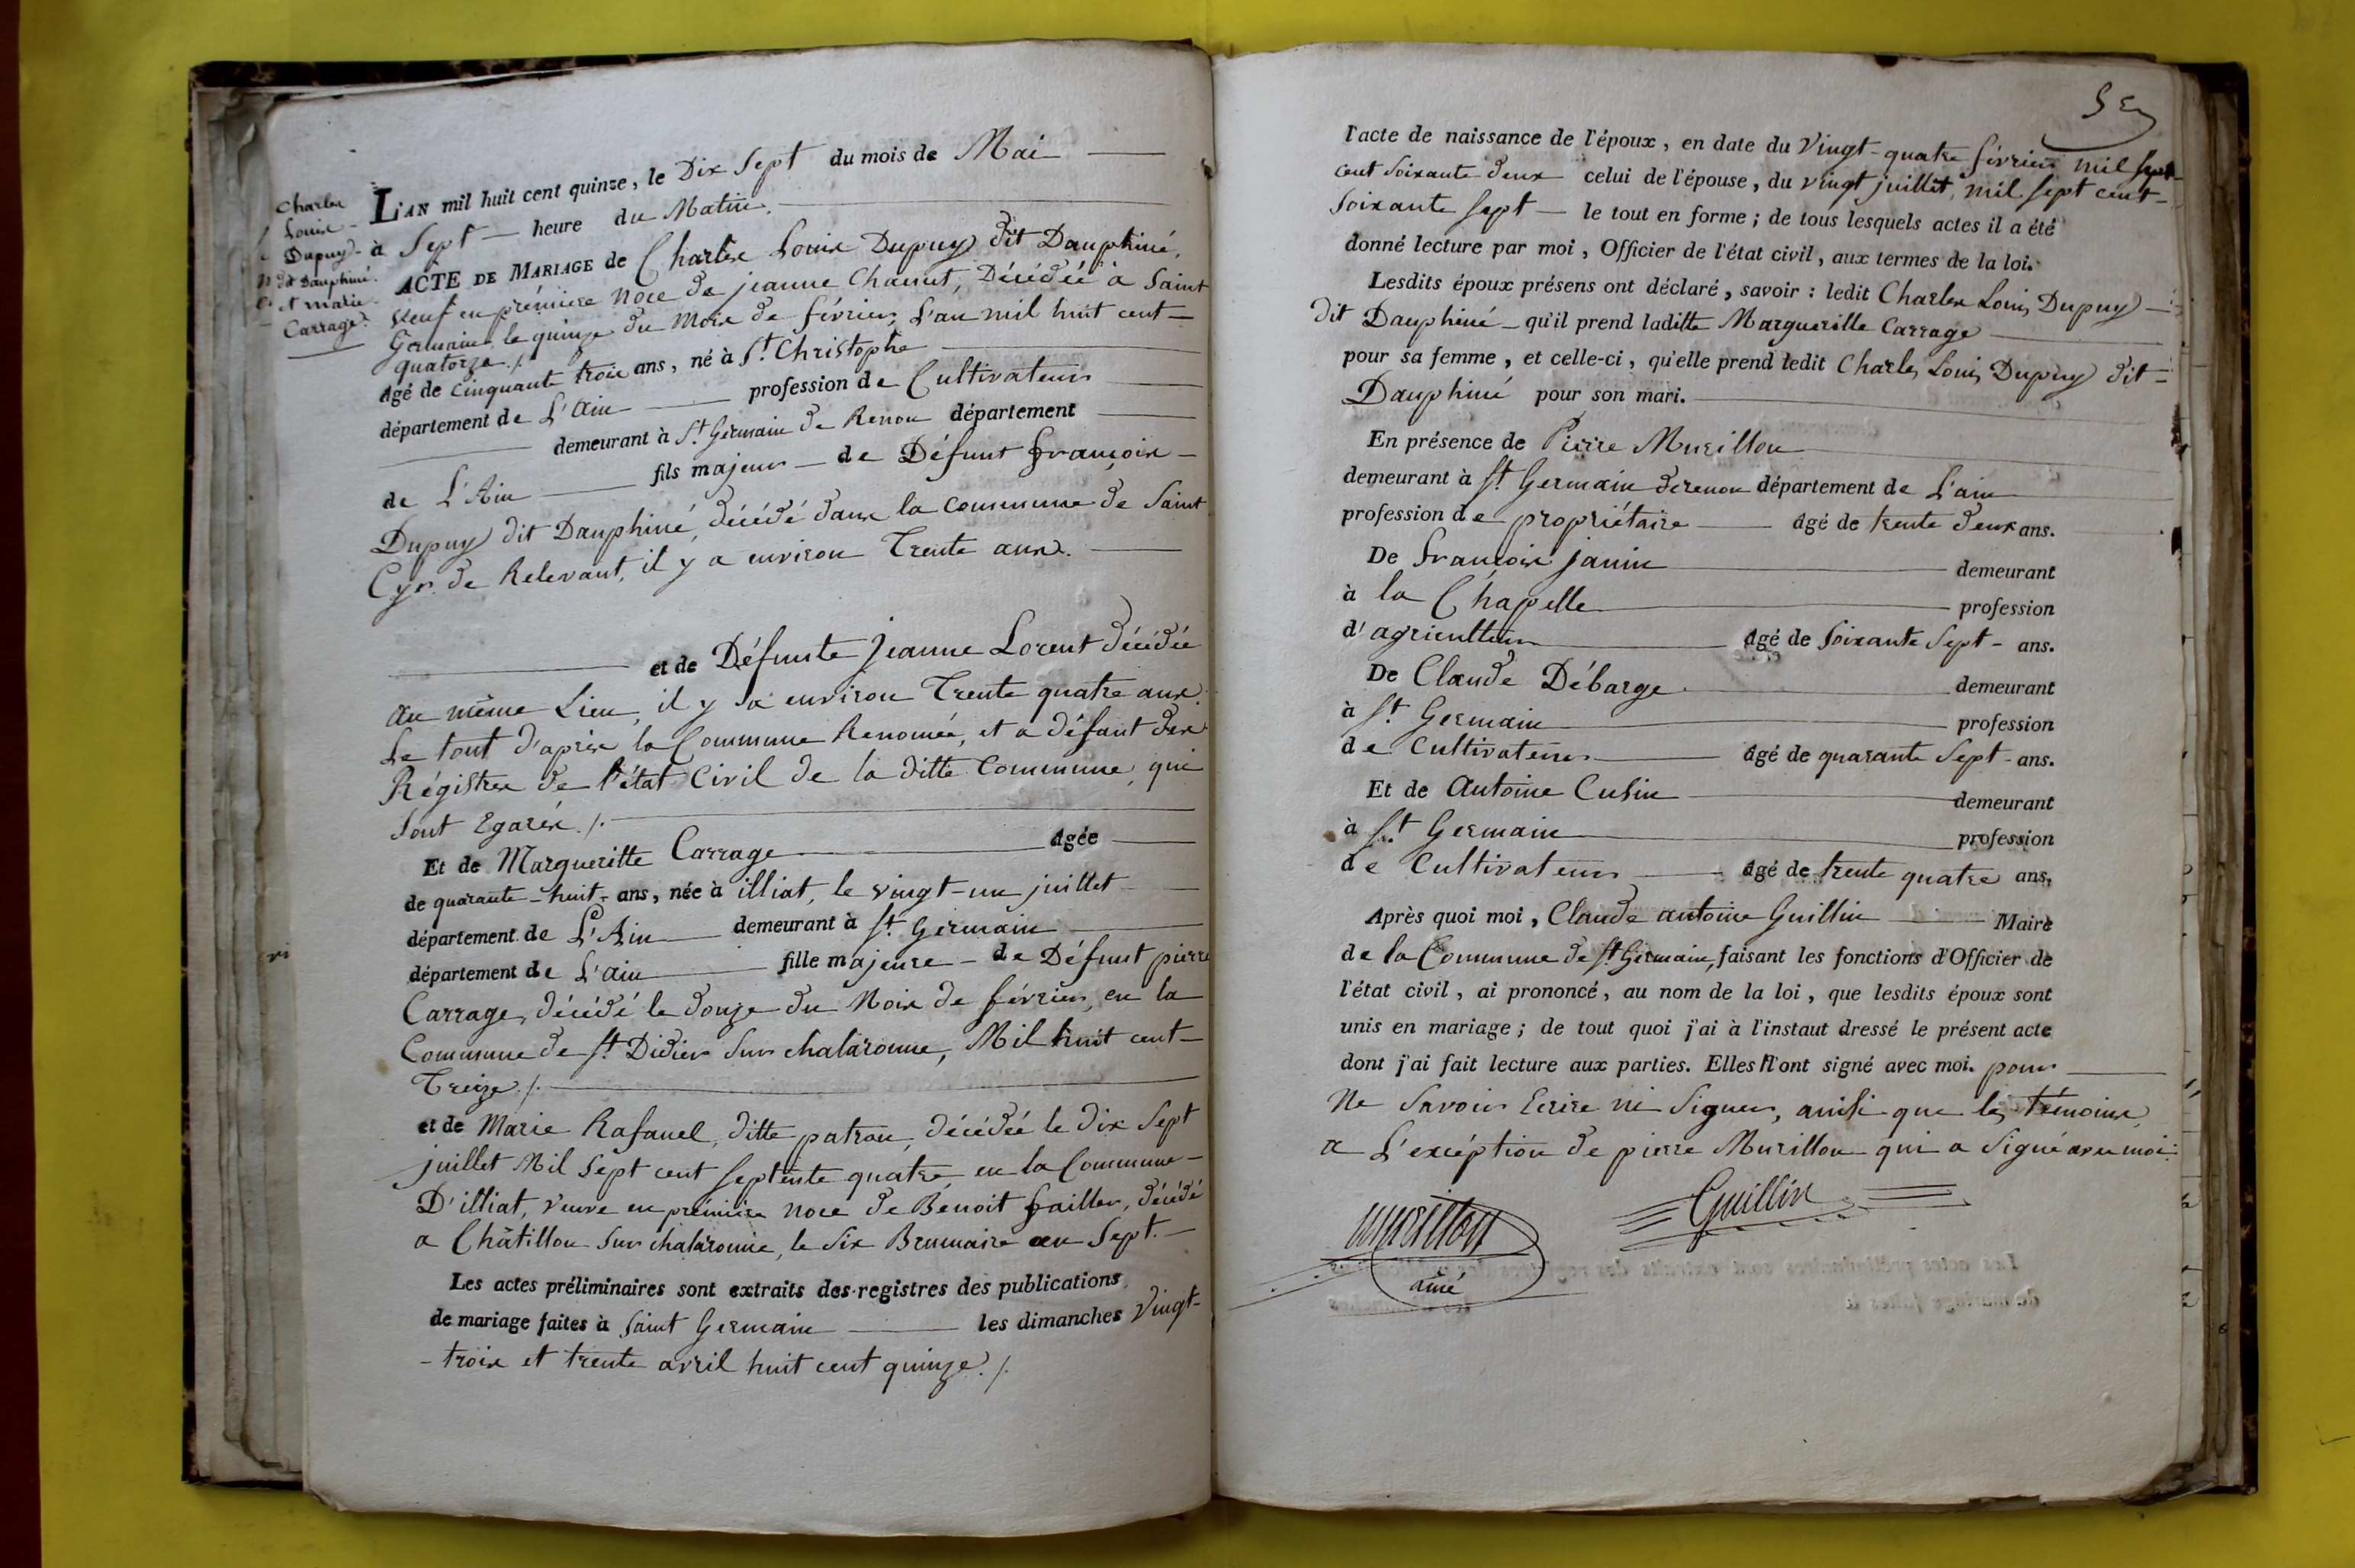 Charles
Louis
Dupuy
dit Dauphiné.
et marie
Carrage.
L'AN mil huit cent quinze, le Dix Sept du mois de Mai
à Sept heure du Matin.
ACTE DE MARIAGE de Charles Louis Dupuy dit Dauphiné,
veuf en prémiere noce de jeanne Chanut, Décédée à Saint
Germain le quinze du Mois de février, L'an mil huit cent
quatorze./.
âgé de cinquante trois ans, né à St. Christophe
département de L'Ain profession de Cultivateur
demeurant à St. Germain de Renon département
de L'Ain fils majeur de Défunt françois
Dupuy dit Dauphiné, décédé dans la commune de Saint
Cyr de Relevant, il y a environ Trente ans.
et de Défunte Jeanne Lorent décédée
au même Lieu, il y a environ Trente quatre ans.
Le tout d'après la Commune Renomée, et a défaut des
Régistres de l'état Civil de la ditte Commune, qui
sont Egarés./.
Et de Margueritte Carrage âgée
de quarante-huit- ans, née à illiat, le vingt-un juillet
département de L'Ain demeurant à St. Germain
département de L'ain fille majeure - de Défunt pierre
Carrage, décédé le douze du Mois de février, en la
Commune de St. Didier Sur chalaronne, Mil huit cent-
Treize./.
et de Marie Rafanel, ditte patron, décédée le Dix Sept
juillet Mil Sept cent septente quatre, en la Commune-
D'illiat, veuve en prémiere noce de Benoit failler, décédé
a Châtillon Sur chalaronne, le Six Brumaire an Sept.-
Les actes préliminaires sont extraits des registres des publications
de mariage faites à Saint Germain les dimanches Vingt-
- trois et trente avril huit cent quinze./.
l'acte de naissance de l'époux, en date du Vingt-quatre février mil sept
cent Soixante deux celui de l'épouse, du vingt juillet, mil sept cent-
Soixante sept - le tout en forme ; de tous lesquels actes il a été
donné lecture par moi, Officier de l'état civil, aux termes de la loi.
Lesdits époux présens ont déclaré, savoir : ledit Charles Louis Dupuy
dit Dauphiné - qu'il prend laditte Margueritte Carrage
pour sa femme, et celle-ci, qu'elle prend ledit Charles Louis Dupuy dit-
Dauphiné pour son mari.
En présence de Pierre Murillon
demeurant à St. Germain derenon département de L'ain
profession de propriétaire âgé de trente deux ans.
De françois janin demeurant
à la Chapelle profession
d'agriculteur âgé de Soixante Sept - ans.
De Claude Débarge demeurant
à St. Germain profession
de Cultivateur âgé de quarante Sept - ans.
Et de Antoine Cusin demeurant
à St. Germain profession
de Cultivateur âgé de trente quatre ans.
Après quoi moi, Claude antoine Guillin Maire
de la Commune de St. Germain, faisant les fonctions d'Officier de
l'état civil, ai prononcé, au nom de la loi, que lesdits époux sont
unis en mariage ; de tout quoi j'ai à l'instaut dressé le présent acte
dont j'ai fait lecture aux parties. Elles N'ont signé avec moi. pour
Ne Savoir Ecrire ni Signer, ainsi que les témoins,
a L'exception de pierre Murillon qui a Signé avec moi.
murillon
ainé
Guillin